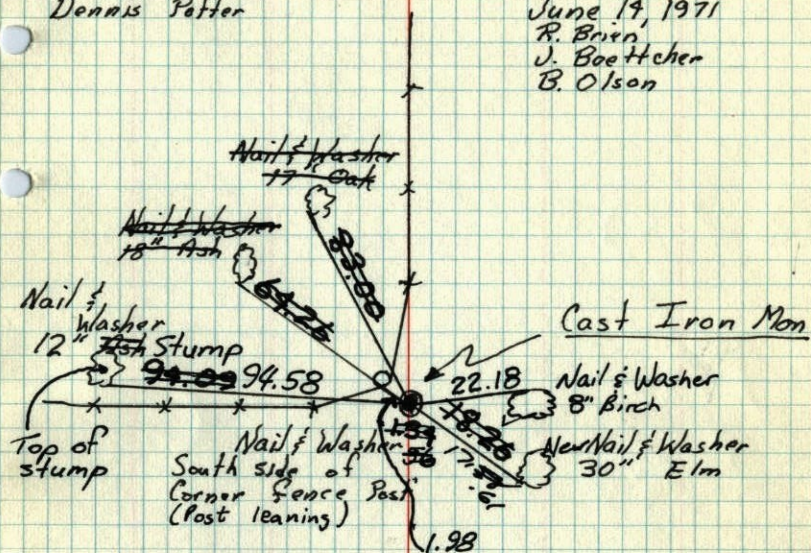 Dennis Potter
June 14, 1971
R. Brien
J. Boettcher
B. Olson
Nail & Washer
17" Oak
83.00
Nail & Washer
18" Ash
64.26
Nail &
Washer
12" Ash Stump
94.58
Top of
stump
Cast Iron Mon
22.18
Nail & Washer
8" Birch
18.26
New Nail & Washer
30" Elm
Nail & Washer
South side of
Corner fence Post
(Post leaning)
1.98